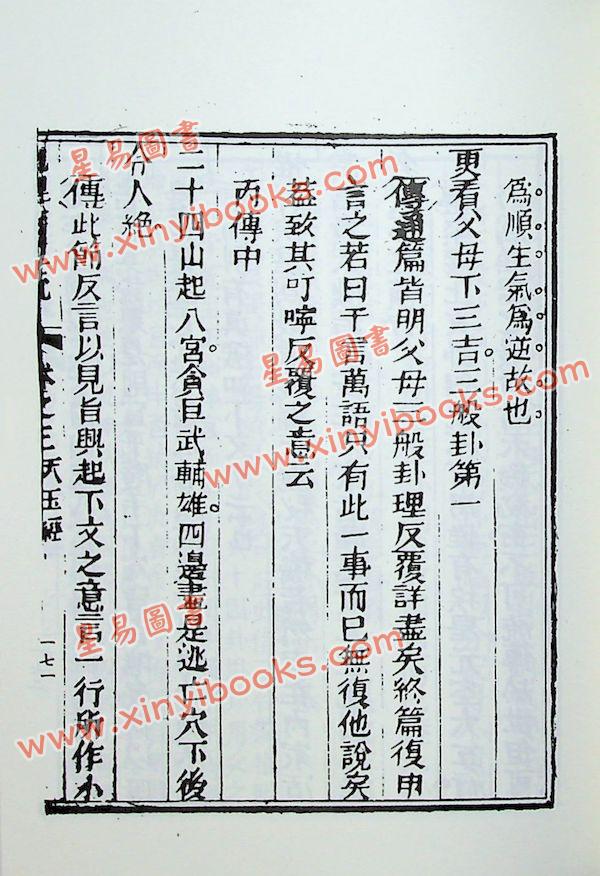 為順生氣為逆故也
更看父母下三吉三般卦第一
傳通篇皆明父母三般卦理反覆詳盡矣終篇復申
言之若曰千言萬語只有此一事而已無復他說矣
蓋致其叮嚀反覆之意云
內傳中
二十四山起八宮貪巨武輔雄四邊盡是逃亡穴下後
令人絶
傳此節反言以見旨興起下文之意言一行所作小
卷之三天玉經
一七一
星易圖書
www.xinyibooks.com
星易圖書
www.xinyibooks.com
星易圖書
www.xinyibooks.com